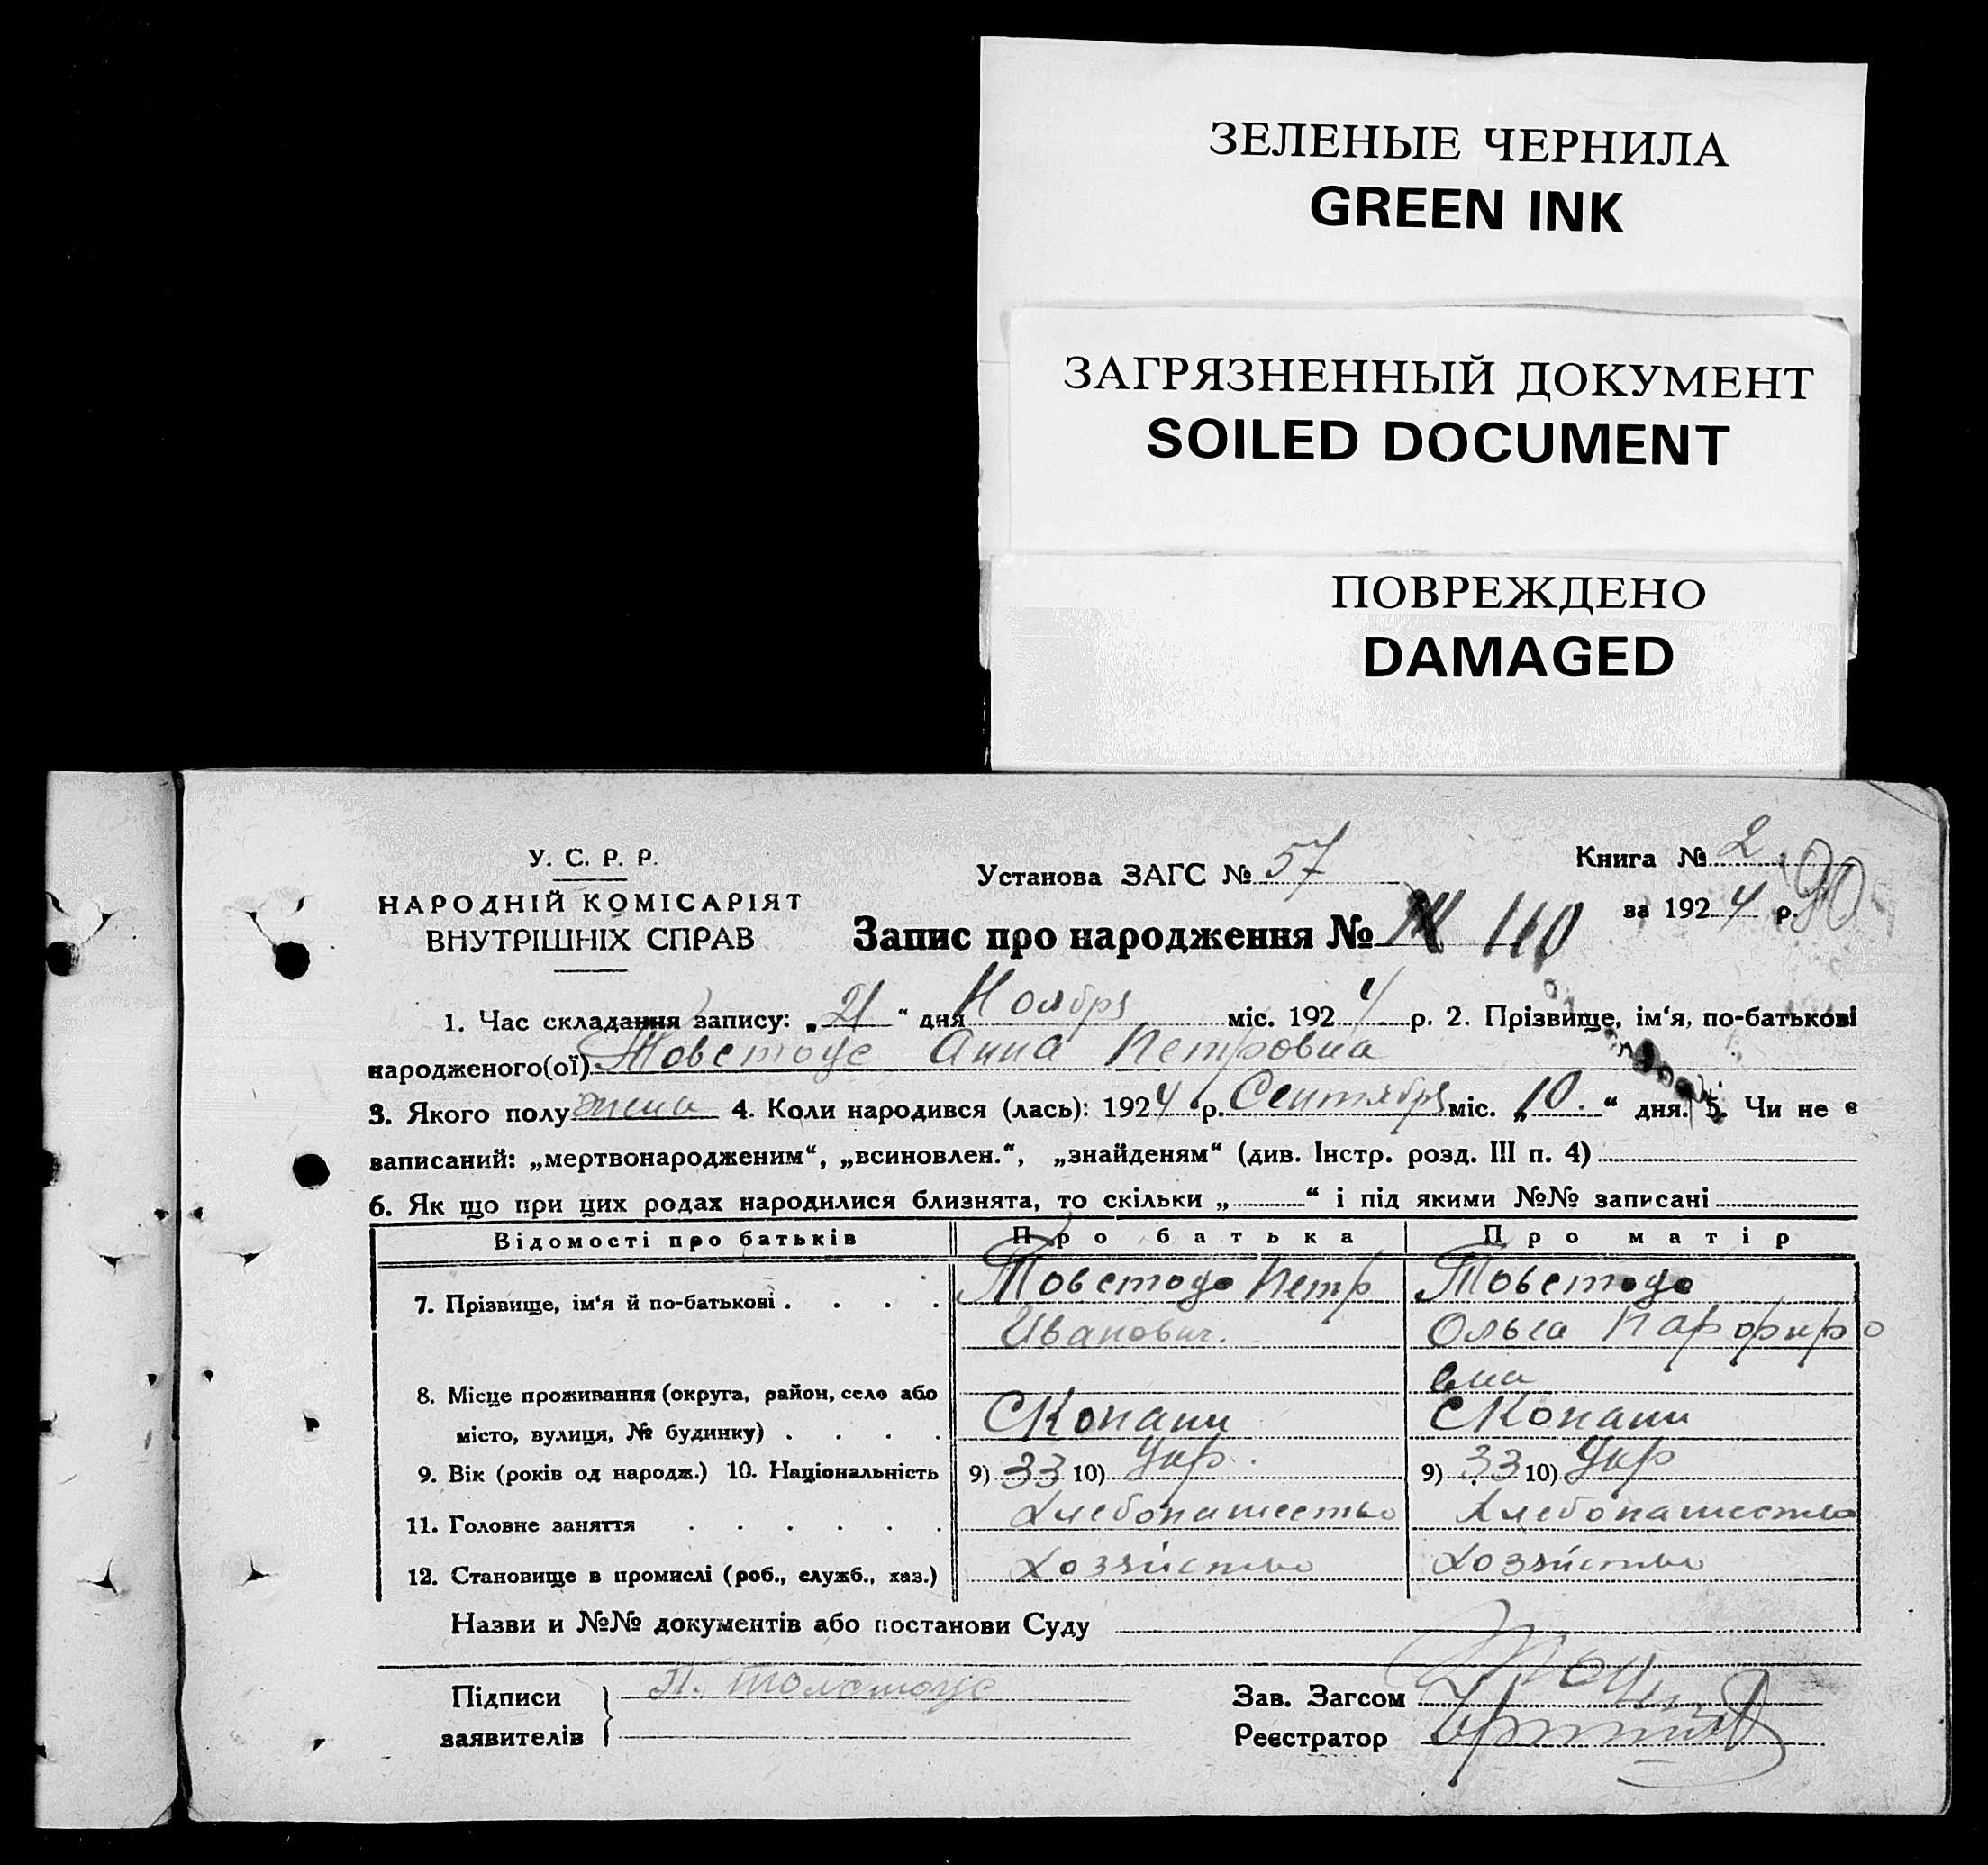 ЗЕЛЕНЫЕ ЧЕРНИЛА
GREEN INK
ЗАГРЯЗНЕННЫЙ ДОКУМЕНТ
SOILED DOCUMENT
ПОВРЕЖДЕНО
DAMAGED
У. С. Р. Р.
НАРОДНІЙ КОМІСАРІЯТ
ВНУТРІШНІХ СПРАВ
Установа ЗАГС № 57
Книга № 2
за 1924 р. 90
Запис про народження № 110
1. Час складання запису: „21“ дня Ноября міс. 1924 р. 2. Прізвище, ім‘я, по-батькові
народженого(ої) Товстоус Анна Петровна
3. Якого полу жена 4. Коли народився (лась): 1924 р. Сентября міс. „10.“ дня. 5. Чи не є
записаний: „мертвонародженим“, „всиновлен.“, „знайденям“ (див. Інстр. розд. III п. 4)
6. Як що при цих родах народилися близнята, то скільки „ “ і під якими №№ записані
Відомості про батьків Про батька Про матір
7. Прізвище, ім‘я й по-батькові . . . . Товстоус Петр Товстоус
Иванович. Ольга Парфиро
вна
8. Місце проживання (округа, район, село або
місто, вулиця, № будинку) . . . . С Копани С Копани
9. Вік (років од народж.) 10. Національність 9) 33 10) Укр. 9) 33 10) Укр
11. Головне заняття . . . . . . Хлебопашество Хлебопашество
12. Становище в промислі (роб., служб., хаз.) Хозяйство Хозяйство
Назви и №№ документів або постанови Суду
Підписи
заявителів
П. Толстоус
Зав. Загсом
Реєстратор